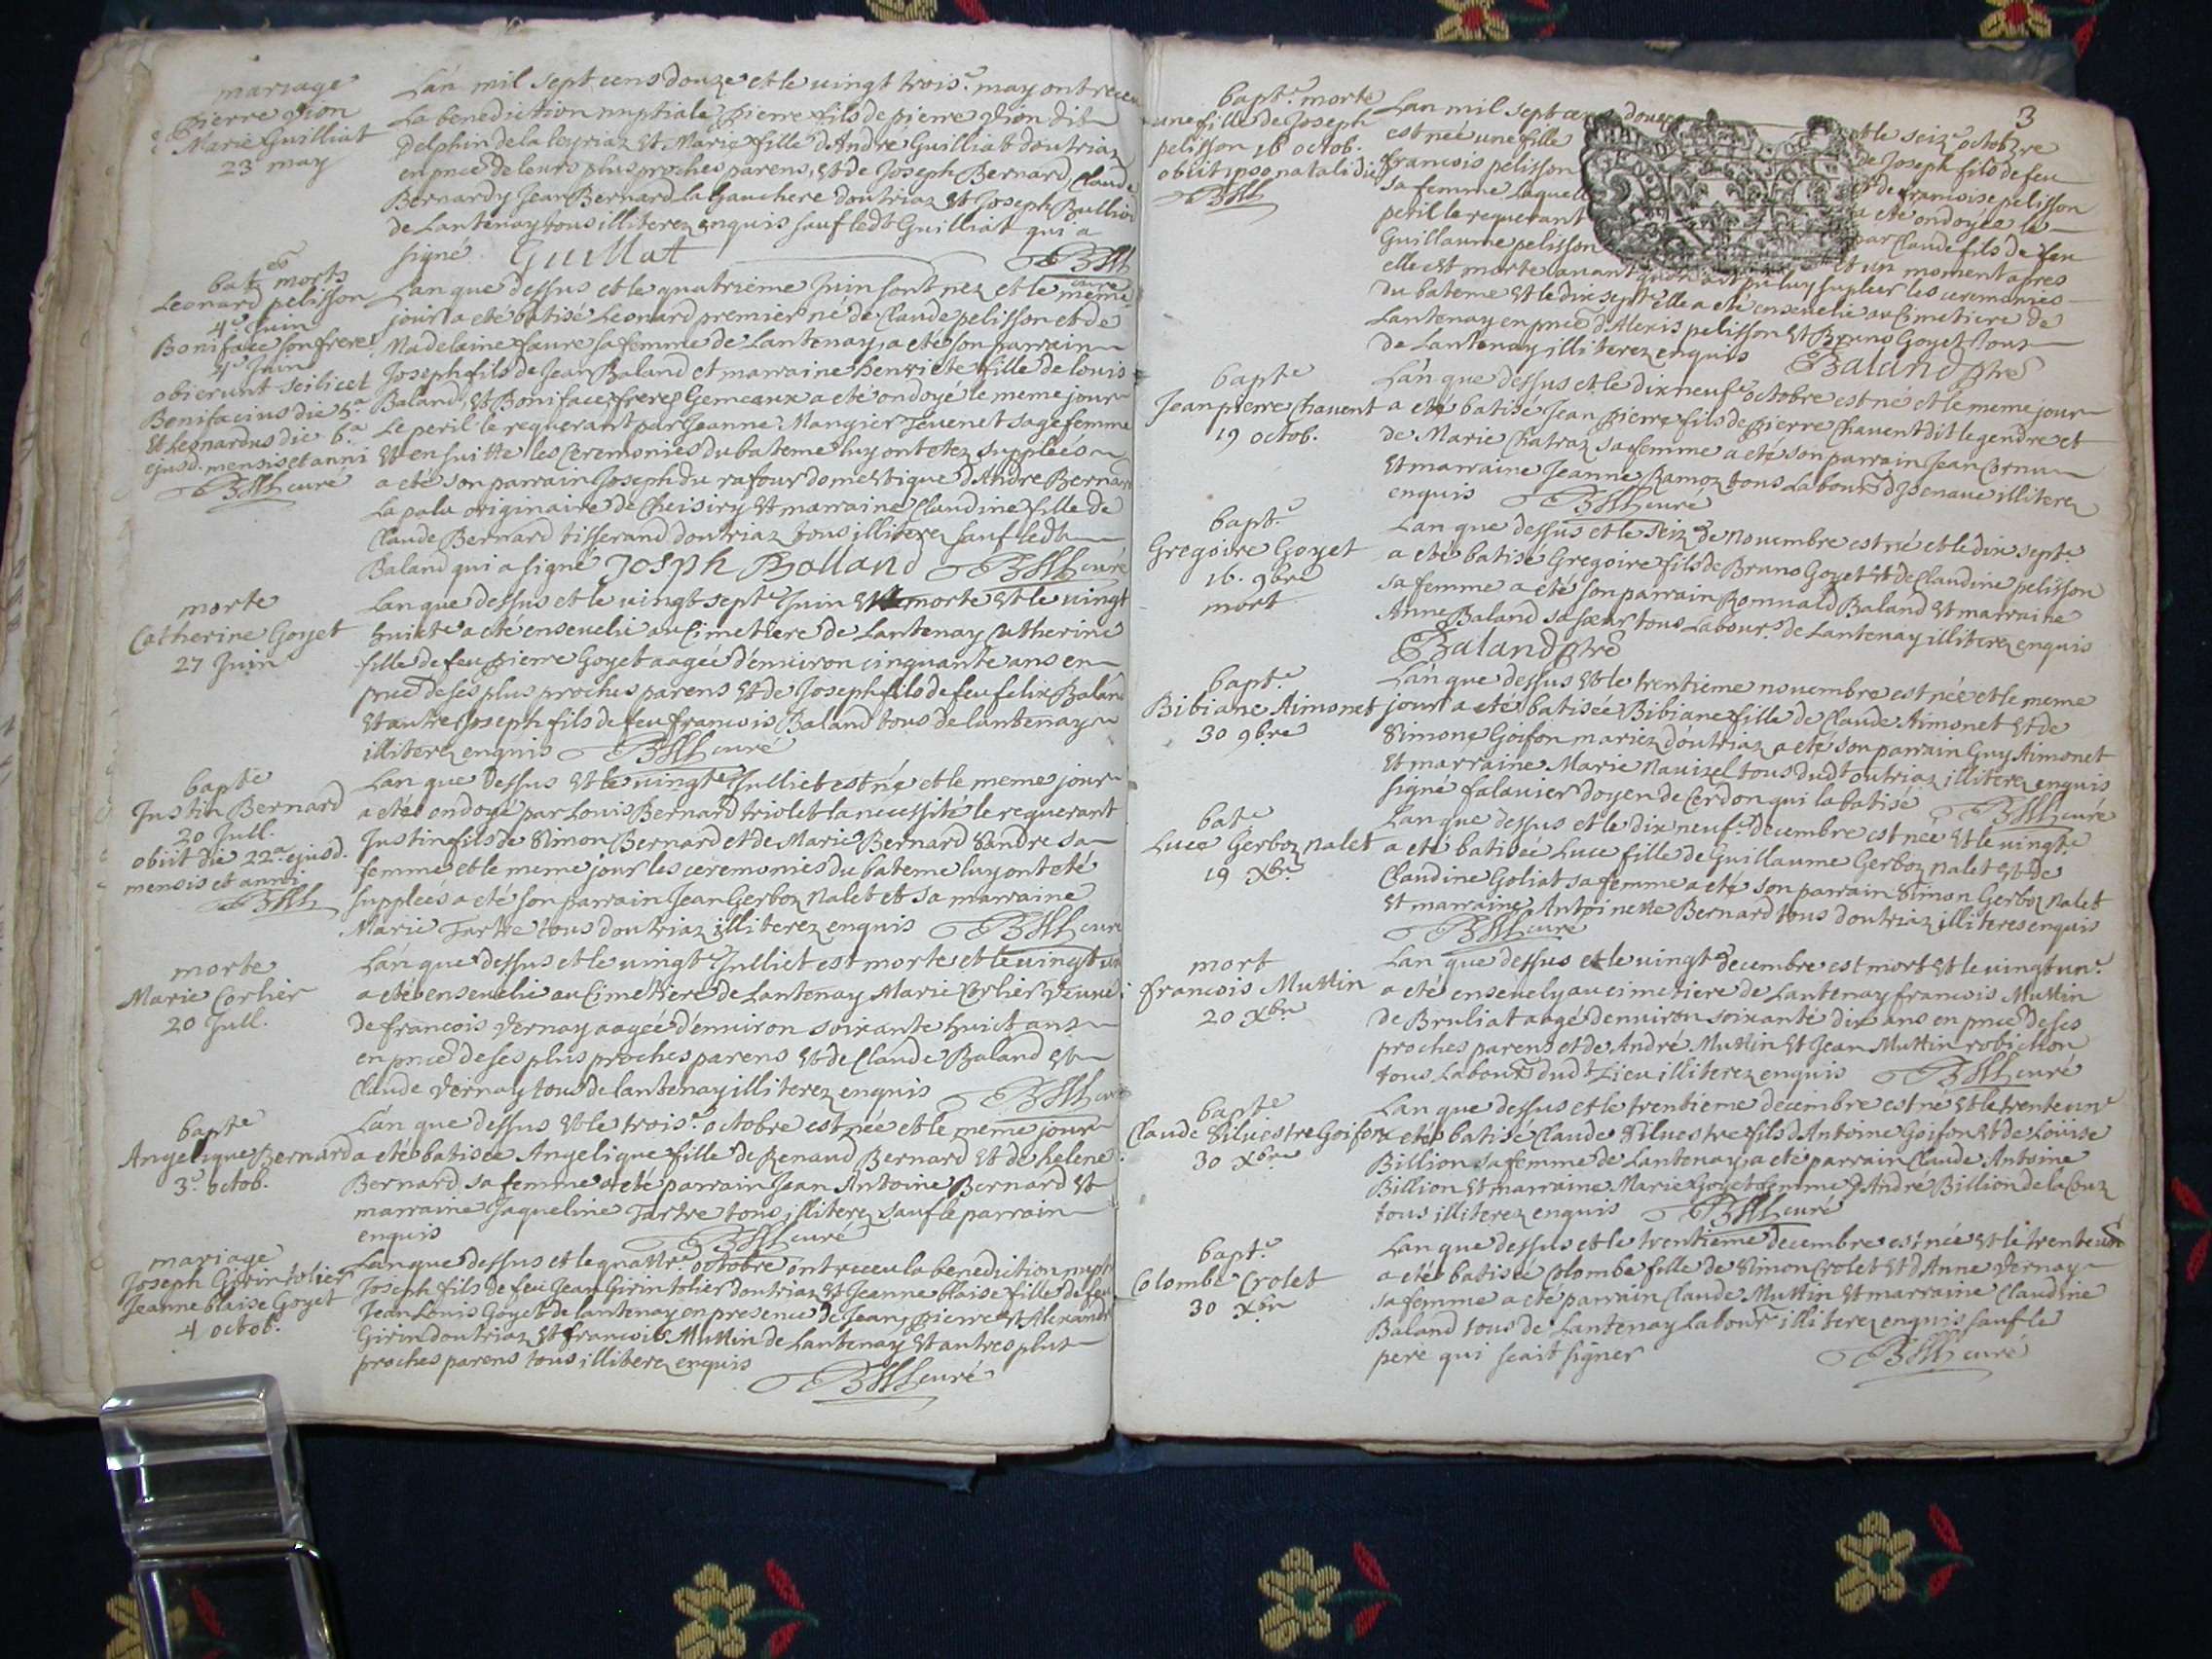 mariage
Pierre Vion
Marie Guilliat
23 may
Lan mil sept cens douze et le vingt trois.e may ont receu
La benediction nuptiale Pierre fils de pierre Vion dit
Delphin de la leyriaz Et Marie fille d'André Guilliat doutriaz
en pnce de leurs plus proches parens, Et de Joseph Bernard, Claude
Bernard Jean Bernard la Gauchere doutriaz Et Joseph Bullion
de Lantenay tous illiterez enquis sauf ledt Guilliat qui a
signé Guillat
curé
bat.es morts
Leonard pelisson
4.e Juin
Boniface son frere
4.e Juin
obierunt scilicet
Bonifacius die 5.a
Et Leonardus die 6.a
ejusd. mensis et anni
curé
Lan que dessus et le quatrieme Juin sont nez et le meme
jour a eté batisé Leonard premier né de Claude pelisson et de
Madelaine faure sa femme de Lantenay, a eté son parrain
Joseph fils de Jean Baland et marraine henriete fille de louis
Baland, Et Boniface freres Gemeaux a eté ondoyé le meme jour
Le peril le requerant par Jeanne Mangier Tevenet sage femme
Et en suitte les Ceremonies du bateme luy ont etez suppleés
a eté son parrain Joseph du rafour domestique d'Andre Bernard
La pala originaire de Cheisiry Et marraine Claudine fille de
Claude Bernard tisserand doutriaz tous illiterez sauf ledt
Baland qui a signé Josph Balland curé
morte
Catherine Goyet
27 Juin
Lan que dessus et le vingt sept.e Juin Est morte Et le vingt
huict.e a eté ensevelie au Cimetiere de Lantenay Catherine
fille de feu pierre Goyet aagée d'environ cinquante ans en
pnce de ses plus proches parens Et de Joseph fils de feu felix Baland
Et autre Joseph fils de feu francois Baland tous de lantenay
illiterez enquis curé
bapt.e
Justin Bernard
20 Jull.
obiit die 22.a ejusd.
mensis et anni
Lan que dessus Et le vingt.e Julliet est né et le meme jour
a eté ondoyé par Louis Bernard triolet la necessité le requerant
Justin fils de Simon Bernard et de Marie Bernard Sandre sa
femme et le meme jour les ceremonies du bateme luy ont eté
suppleés a eté son parrain Jean Gerboz nalet et sa marraine
Marie Tartre tous doutriaz illiterez enquis curé
morte
Marie Corlier
20 Jull.
Lan que dessus et le vingt.e Julliet est morte et le vingt un
a eté ensevelie au Cimetiere de Lantenay Marie Corlier veuve
de francois Vernay aagée d'environ soixante huict ans
en pnce de ses plus proches parens Et de Claude Baland Et
Claude Vernay tous de lantenay illiterez enquis
bapt.e
Angelique Bernard
3.e octob.
Lan que dessus Et le trois.e octobre est née et le meme jour
a eté batisée Angelique fille de Renaud Bernard Et de helene
Bernard sa femme a eté parrain Jean Antoine Bernard Et
marraine Jaqueline Tartre tous illiterez sauf le parrain
enquis curé
mariage
Joseph Girin tolier
Jeanne blaise Goyet
4 octob.
Lan que dessus et le quattr.e octobre ont receu la benediction nupt.
Joseph fils de feu Jean Girin tolier doutriaz Et Jeanne blaise fille de feu
Jean Louis Goyet de lantenay en presence de Jean, pierre Et Alexandre
Girin doutriaz Et francois Muttin de Lantenay Et autres plus
proches parens tous illiterez enquis
curé
3
bapt.e morte
une fille de Joseph
pelisson 16 octob.
obiit ipso natali die
Lan mil sept cens douze et le seiz.e octobre
est neé une fille de Joseph fils de feu
francois pelisson de francoise pelisson
sa femme laquelle a eté ondoyée le
peril le requerant par Claude fils de feu
Guillaume pelisson Et un moment apres
elle est morte avant luy supleer les ceremonies
du bateme Et le dix sept.e elle a eté ensevelie au Cimetiere de
Lantenay en pnce d'Alexis pelisson Et Bruno Goyet tous
de Lantenay illiterez enquis Baland ptre
bapt.e
Jean pierre Chavent
19 octob.
Lan que dessus et le dix neuf.e octobre est né et le meme jour
a eté batisé Jean Pierre fils de Pierre Chavent dit legendre et
de Marie Chatraz sa femme a eté son parrain Jean Cornu
Et marraine Jeanne Ramoz tous Labours d'Isenave illiterez
enquis curé
bapt.e
Gregoire Goyet
16. 9bre
mort
Lan que dessus et le seiz.e de novembre est né et le dix sept.e
a eté batisé Gregoire fils de Bruno Goyet Et de Claudine pelisson
sa femme a eté son parrain Romuald Baland Et marraine
Anne Baland sa sœur tous Labour.s de Lantenay illiterez enquis
Baland ptre
bapt.e
Bibiane Aimonet
30 9bre
Lan que dessus Et le trentieme novembre est née et le meme
jour a eté batisée Bibiane fille de Claude Aimonet Et de
Simone Goifon mariez d'outriaz a eté son parrain Guy Aimonet
Et marraine Marie Navizel tous dudt outriaz illiterez enquis
signé falavier doyen de Cerdon qui la batisé curé
bat.e
Luce Gerboz nalet
19 Xbre
Lan que dessus et le dix neuf.e decembre est neé Et le vingt.e
a eté batisée Luce fille de Guillaume Gerboz nalet Et de
Claudine Goliat sa femme a eté son parrain Simon Gerboz nalet
Et marraine Antoinette Bernard tous doutriaz illiteres enquis
curé
mort
francois Muttin
20 Xbre
Lan que dessus et le vingt.e decembre est mort Et le vingt un.e
a eté ensevely au cimetiere de Lantenay francois Muttin
de Bruliat aagé d'environ soixante dix ans en pnce de ses
proches parens et de André Muttin Et Jean Muttin robichon
tous Labours dudt Lieu illiterez enquis curé
bapt.e
Claude Silvestre Goifon
30 Xbre
Lan que dessus et le trentieme decembre est né Et le trente un.e
a eté batisé Claude Silvestre fils d'Antoine Goifon Et de Loüise
Billion sa femme de Lantenay, a eté parrain Claude Antoine
Billion Et marraine Marie Goyet femme d'André Billion de la Couz
tous illiterez enquis curé
bapt.e
Colombe Crolet
30 Xbre
Lan que dessus et le trentieme decembre est née Et le trente un
a eté batisée Colombe fille de Simon Crolet Et d'Anne Vernay
sa femme a eté parrain Claude Muttin Et marraine Claudine
Baland tous de Lantenay Labour.s illiterez enquis sauf le
pere qui scait signer curé